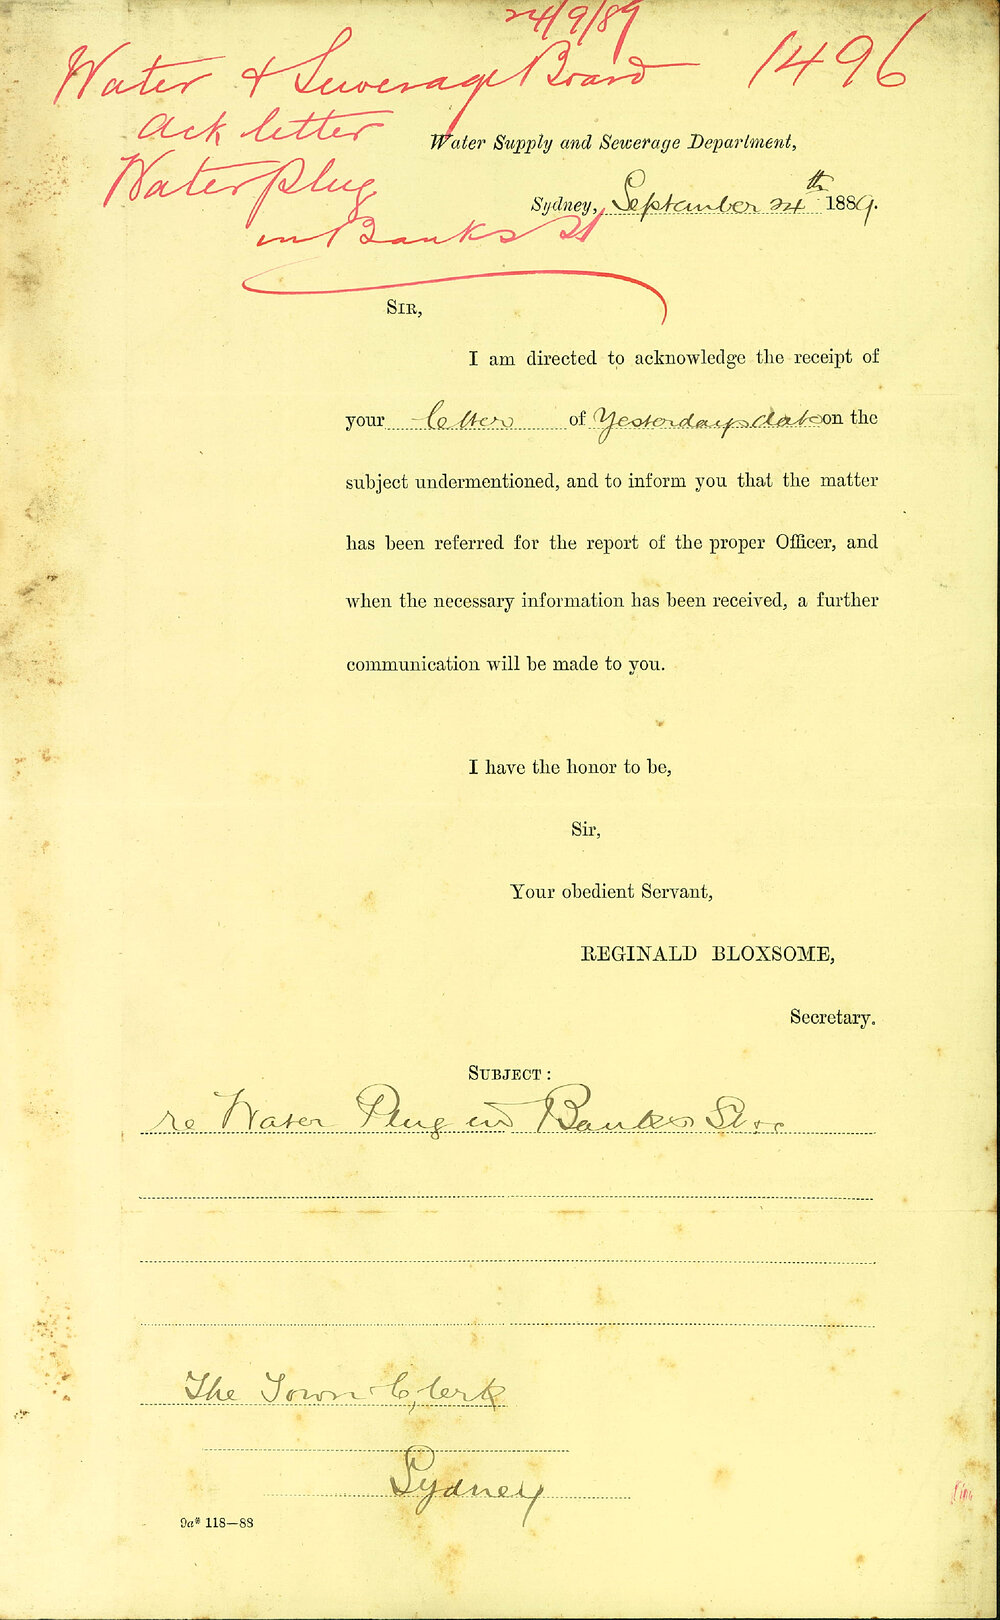 24/9/89
Water & Sewerage Board 1496
Ack letter
Water Plug
in Banks St
Water Supply and Sewerage Department,
Sydney, September 24th 1889.
SIR,
I am directed to acknowledge the receipt of
your letter of Yesterdays date on the
subject undermentioned, and to inform you that the matter
has been referred for the report of the proper Officer, and
when the necessary information has been received, a further
communication will be made to you.
I have the honor to be,
Sir,
Your obedient Servant,
REGINALD BLOXSOME,
Secretary.
SUBJECT:
re Water Plug in Banks St
The Town Clerk
Sydney
9a* 118—88